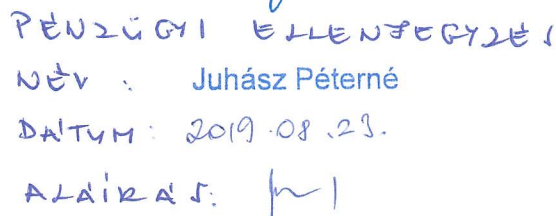 PÉNZÜGYI ELLENJEGYZÉS
NÉV : Juhász Péterné
DÁTUM: 2019.08.23.
ALÁÍRÁS: